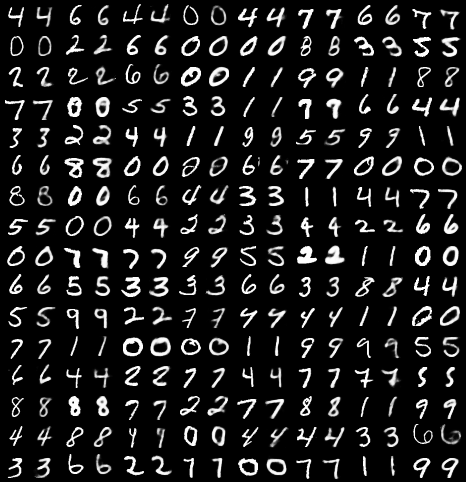 4 4 6 6 4 4 0 0 4 4 7 7 6 6 7 7
0 0 2 2 6 6 0 0 0 0 8 8 3 3 5 5
2 2 2 2 6 6 0 0 1 1 9 9 1 1 8 8
7 7 0 0 5 5 3 3 1 1 9 9 6 6 4 4
3 3 2 2 4 4 1 1 9 9 5 5 9 9 1 1
6 6 8 8 0 0 0 0 6 6 7 7 0 0 0 0
8 8 0 0 6 6 4 4 3 3 1 1 4 4 7 7
5 5 0 0 4 4 2 2 3 3 4 4 2 2 6 6
0 0 7 7 7 7 9 9 5 5 2 2 1 1 0 0
6 6 5 5 3 3 3 3 6 6 3 3 8 8 4 4
5 5 9 9 2 2 7 7 4 4 4 4 1 1 0 0
7 7 1 1 0 0 0 0 1 1 9 9 9 9 5 5
6 6 4 4 2 2 7 7 4 4 7 7 7 7 5 5
8 8 8 8 7 7 2 2 7 7 8 8 1 1 9 9
4 4 8 8 9 9 0 0 4 4 4 4 3 3 6 6
3 3 6 6 2 2 7 7 0 0 7 7 1 1 9 9